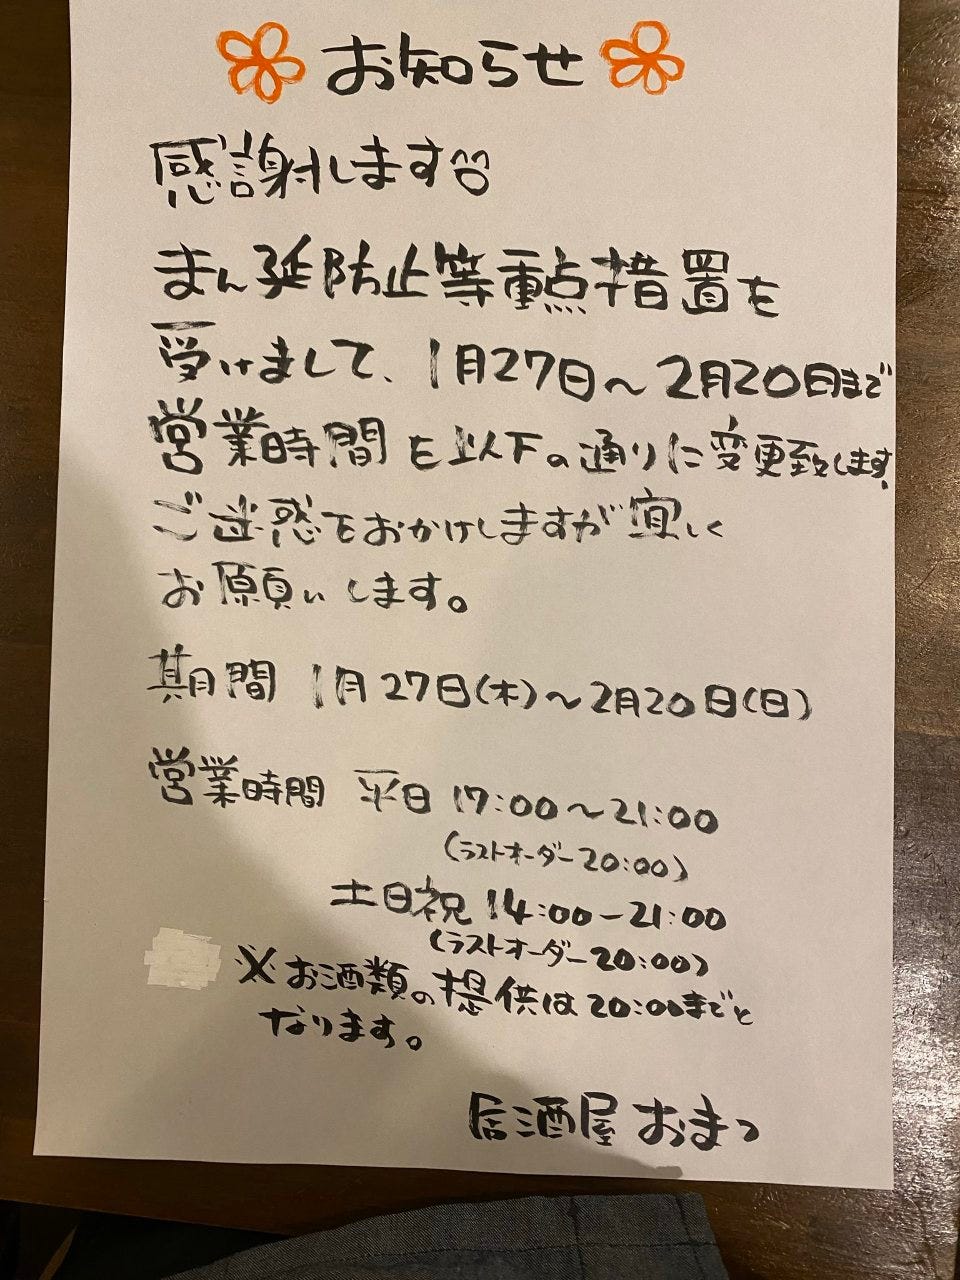 お知らせ
感謝します
まん延防止等重点措置を
受けまして、1月27日〜2月20日まで
営業時間を以下の通りに変更致します。
ご迷惑をおかけしますが宜しく
お願いします。
期間 1月27日(木)〜2月20日(日)
営業時間 平日 17:00〜21:00
(ラストオーダー20:00)
土日祝 14:00-21:00
(ラストオーダー20:00)
※お酒類の提供は20:00までと
なります。
居酒屋 おまつ